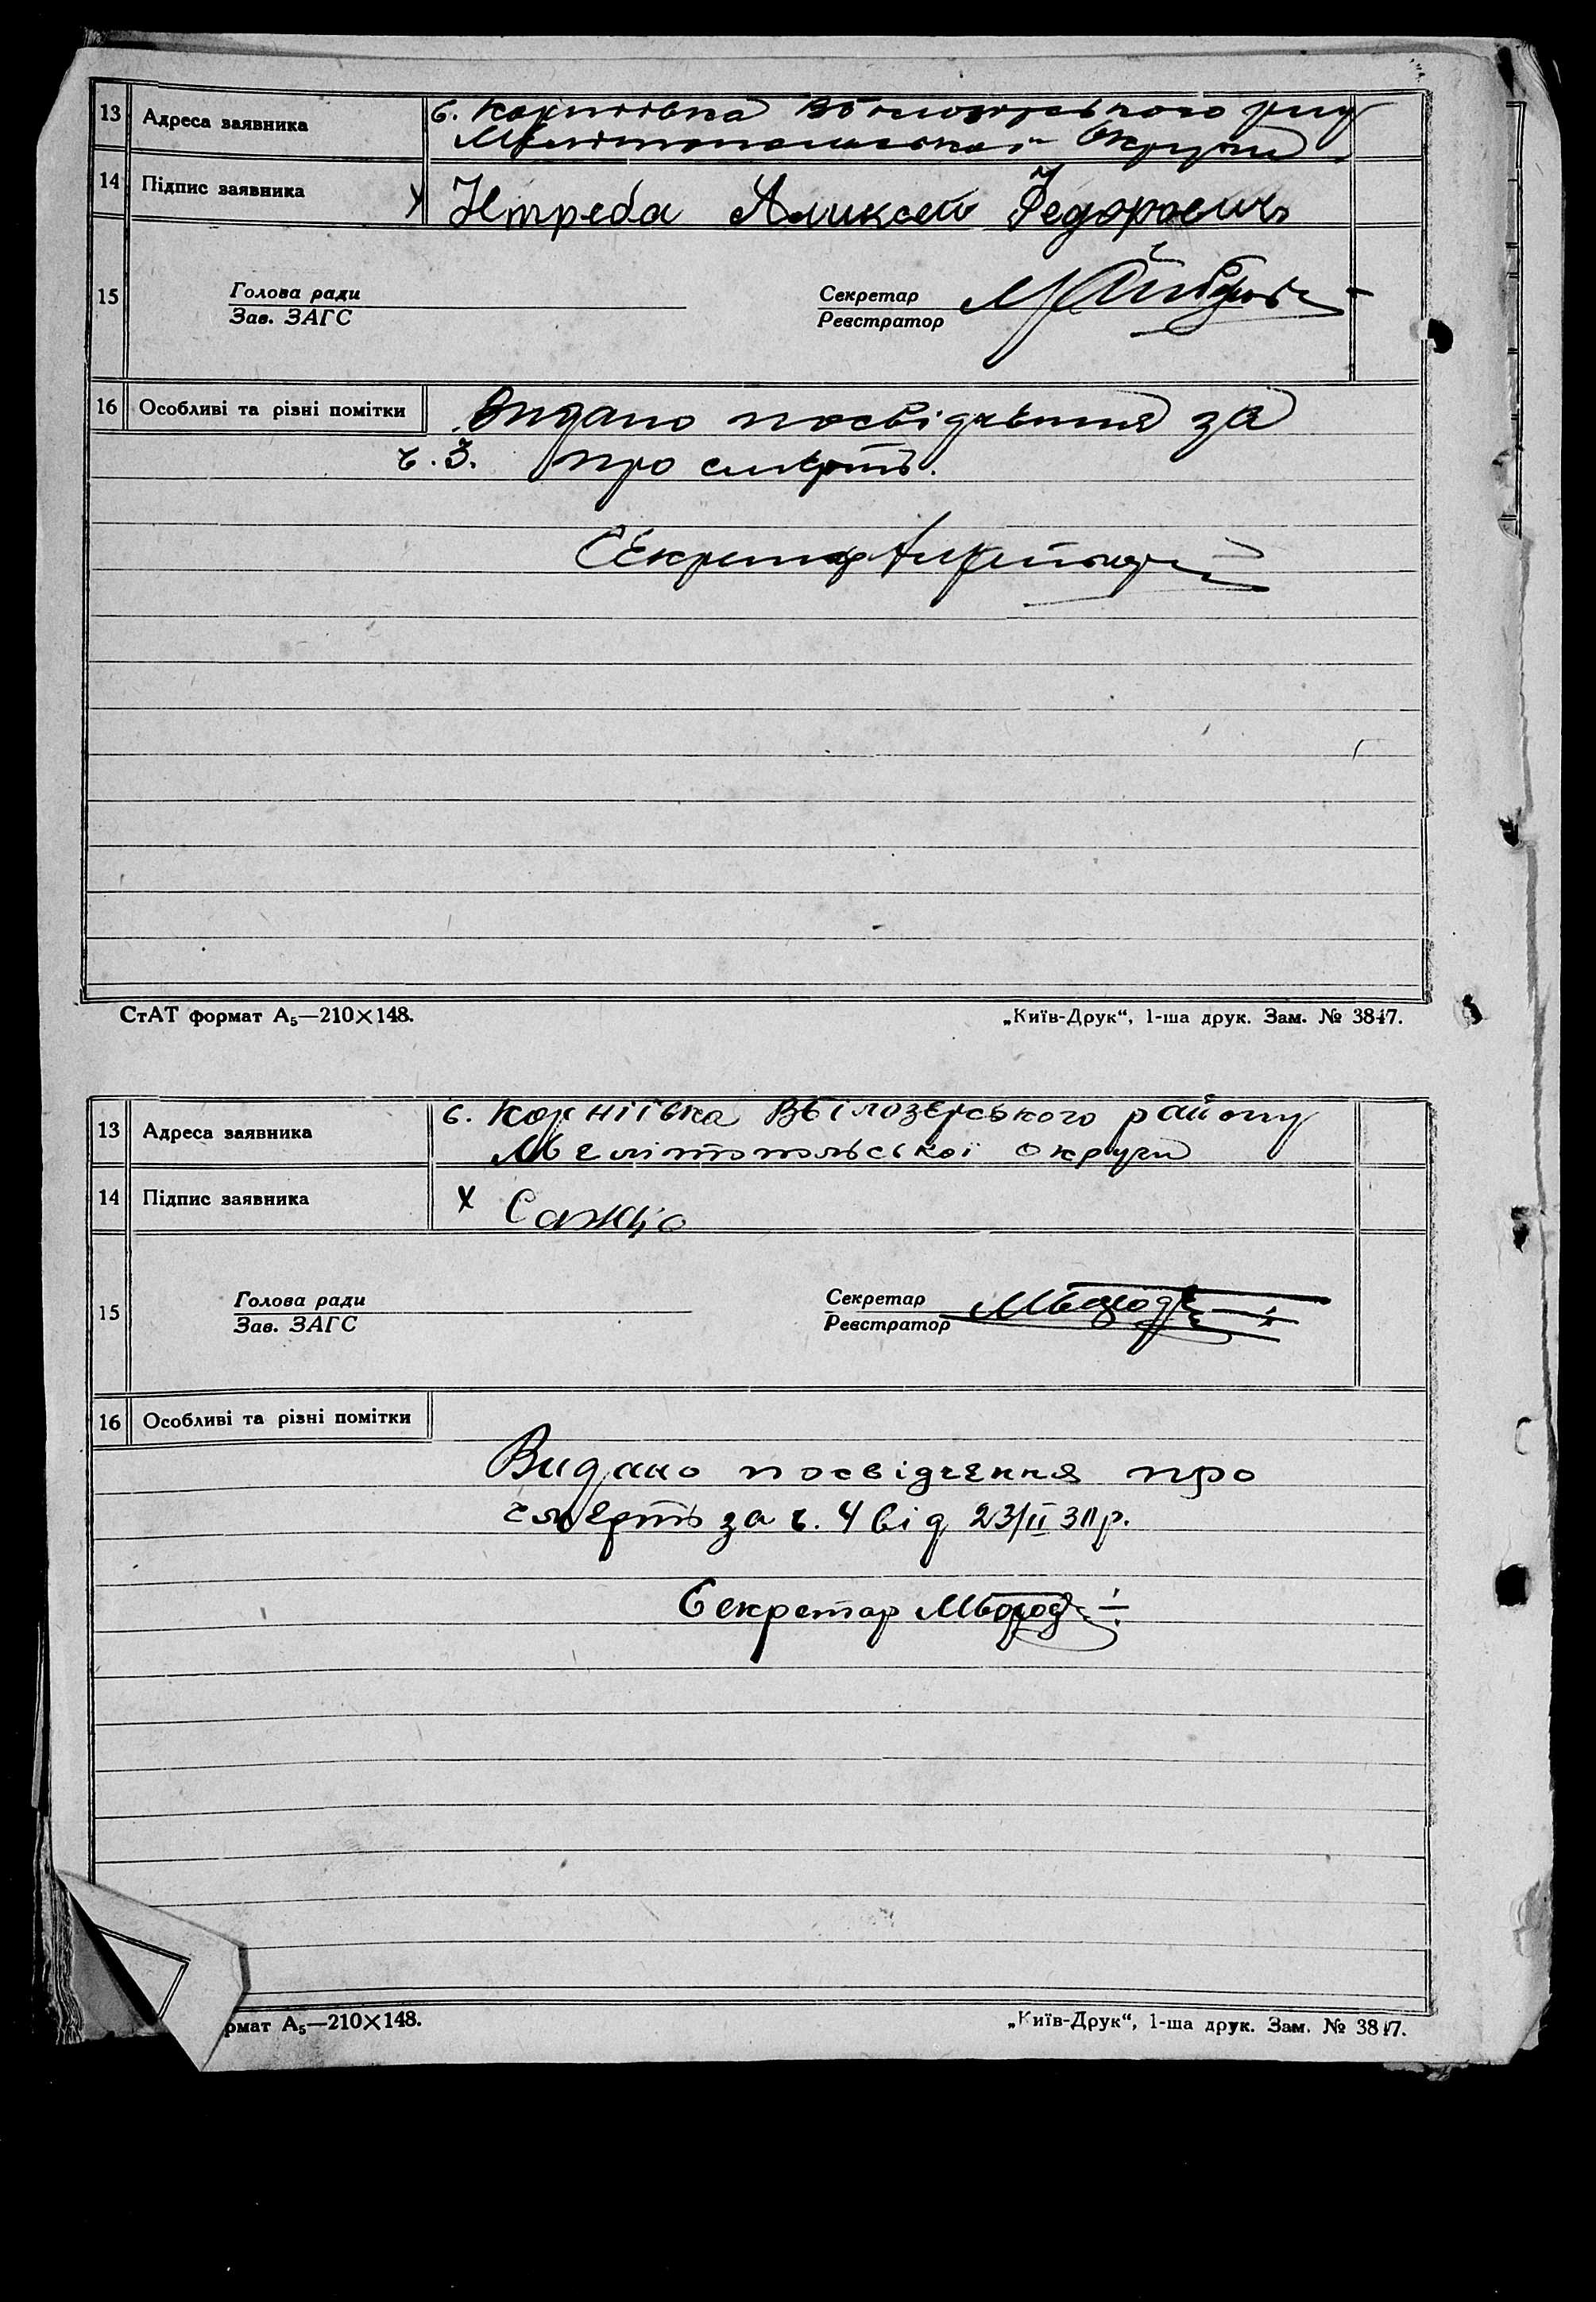 13 Адреса заявника с. Корніївка ВБілозерського р-ну
Мелітопольської Округи
14 Підпис заявника х Нтреба Аликсей Федорович
15 Голова ради Секретар
Зав. ЗАГС Реєстратор
16 Особливі та різні помітки Видано посвідчення за
ч. 3. про смерть.
Секретар
СтАТ формат А₅—210×148. „Київ-Друк“, 1-ша друк. Зам. № 3847.
13 Адреса заявника с. Корніївка ВБілозерського району
Мелітопольської округи
14 Підпис заявника х
15 Голова ради Секретар
Зав. ЗАГС Реєстратор
16 Особливі та різні помітки
Видано посвідчення про
смерть за ч. 4 від 23/II 31 р.
Секретар
рмат А₅—210×148. „Київ-Друк“, 1-ша друк. Зам. № 3847.